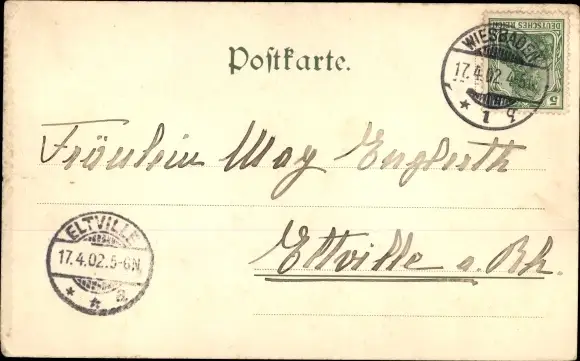 Postkarte.
WIESBADEN
17.4.02 4-5N.
* 1 g
DEUTSCHES REICH
5
Fräulein May Engleith
ELTVILLE
17.4.02.5-6N.
* * a.
Eltville a. Rh.